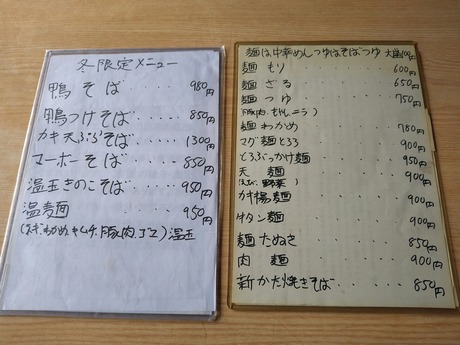 冬限定メニュー
鴨そば ・・・・ 980円
鴨つけそば ・・・ 850円
カキ天ぷらそば ・・・ 1300円
マーボーそば ・・・ 850円
温玉きのこそば ・・・ 950円
温麺 ・・・・ 950円
わかめ キムチ 豚肉 ゴマ) 温玉
麺は中華めんつゆはそばつゆ 大盛100円
麺 もり ・・・・ 600円
麺 ざる ・・・・ 650円
麺 つゆ ・・・・ 750円
麺 わかめ ・・・ 780円
マグ麺とろろ ・・・ 900円
とろろぶっかけ麺 ・・・ 950円
天 麺 ・・・・ 900円
(えび、野菜)
カキ揚麺 ・・・・ 900円
牛タン麺 ・・・・ 900円
麺 たぬき ・・・・ 850円
肉 麺 ・・・・ 900円
新 かた焼きそば ・・・・ 850円